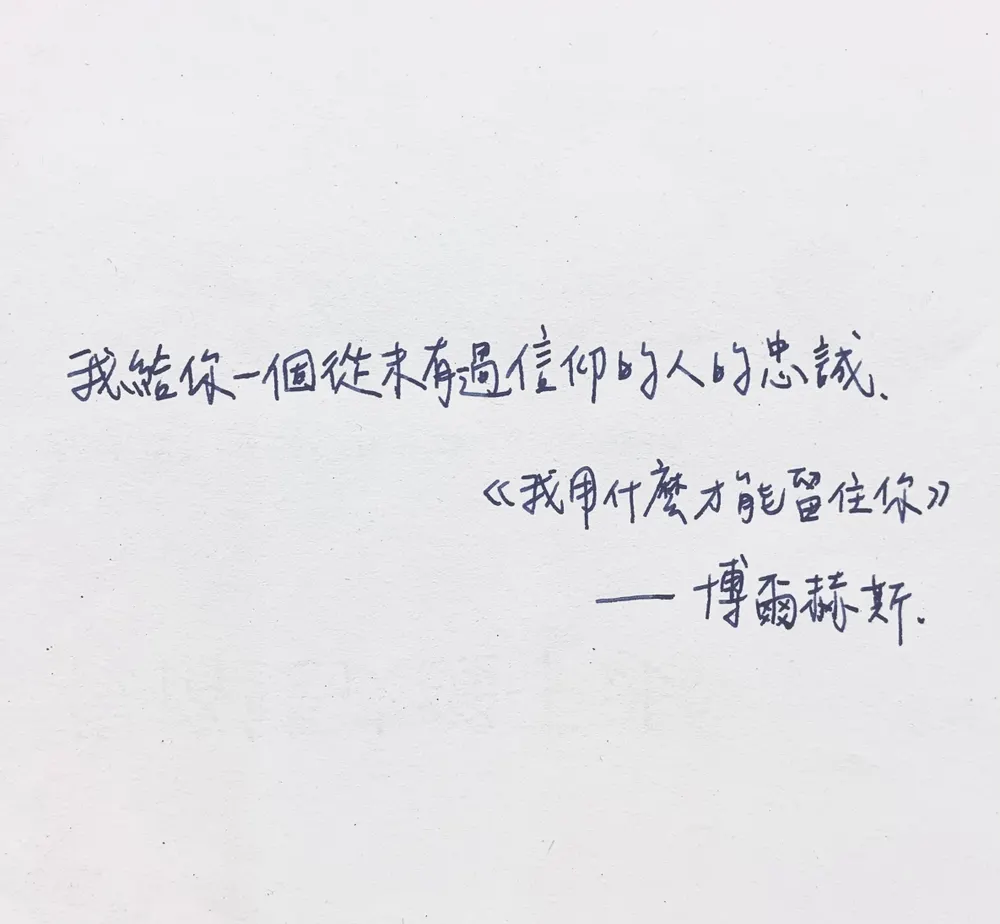 我給你一個從未有過信仰的人的忠誠.
《我用什麼才能留住你》
—— 博爾赫斯.